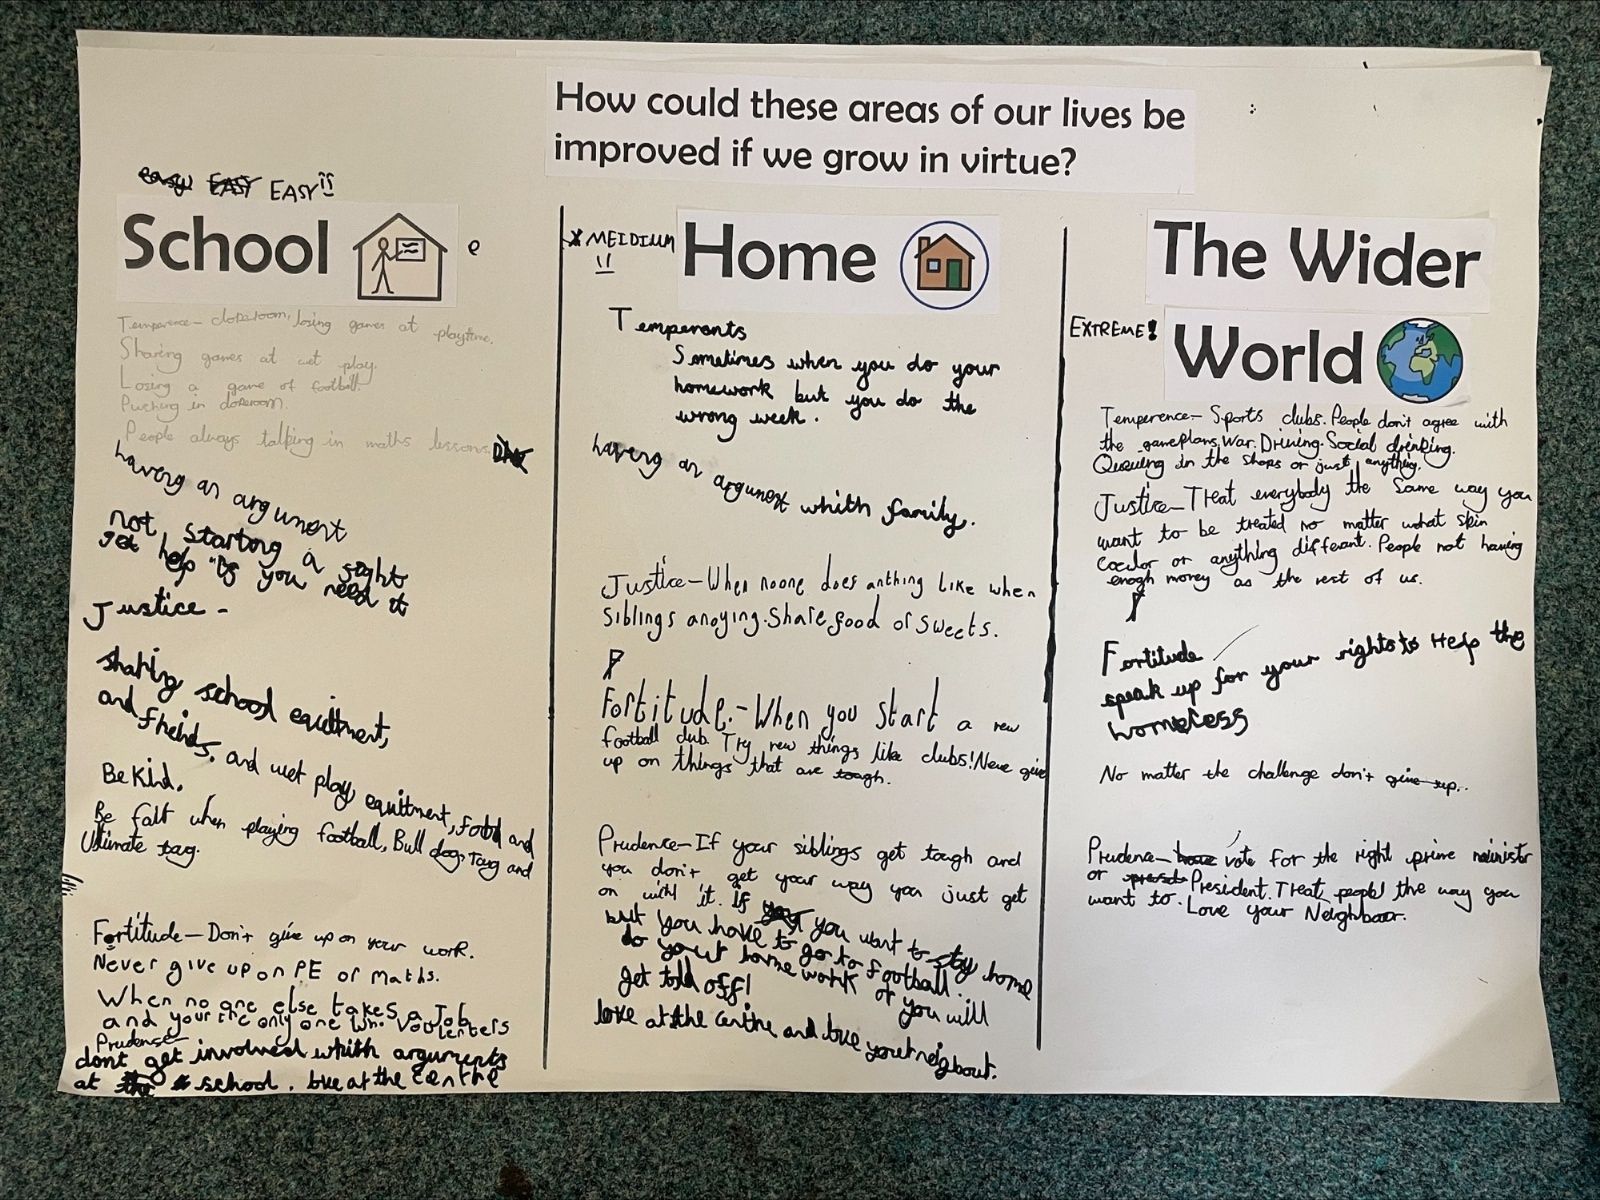 How could these areas of our lives be
improved if we grow in virtue?
easy EASY EASY!!
School
e
Temperence- cloperoom, losing games at playtime.
Sharing games at wet play.
Losing a game of football.
Puching in cloperoom.
People always talking in maths lessons.
having an argument
not starting a fight
get help if you need it
Justice -
sharing school equitment,
and freinds, and wet play, equitment, food and
Be Kind.
Be falt when playing football, Bull dog, Tag and
Ultimate tag.
Fortitude- Don't give up on your work.
Never give up on PE or Maths.
When no one else takes a Job
and your the only one who voulenters
Prudense-
dont get involved whith arguments
at the school. love at the centre
MEIDIUM
!!
Home
Temperents
Sometimes when you do your
homework but you do the
wrong week.
having an argument whith family.
Justice- When noone does anthing like when
siblings anoying. Share food or sweets.
F
Fortitude.- When you start a new
football club. Try new things like clubs! Never give
up on things that are tough.
Prudence- If your siblings get tough and
you don't get your way you just get
on with it. If you want to stay home
but you have to go to football.
do your home work or you will
get told off!
love at the centre and love your neigbour.
The Wider
EXTREME!
World
Temperence- Sports clubs. People don't agree with
the gameplans. War. Driving. Social drinking.
Queuing in the shops or just anything.
Justice- Treat everybody the same way you
want to be treated no matter what skin
coulor or anything differant. People not having
enogh money as the rest of us.
F
Fortitude
speak up for your rights to Help the
homeless
No matter the challenge don't give up..
Prudence- have vote for the right prime minister
or President. Treat people the way you
want to. Love your Neighbour.